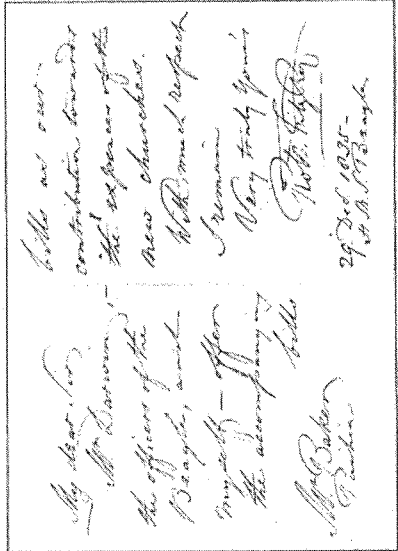 My dear Sir,
Mr. Darwin, –
the officers of the
Beagle, and
myself – offer
the accompanying
bills
Mr. Baker
Paihia
bills as our
contribution towards
the expences of the
new churches.
With much respect
I remain
Very truly yours
Robt. FitzRoy
29 Dec 1835 –
H.M.S. Beagle